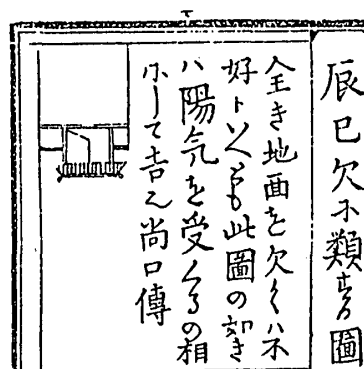 辰巳欠不類する圖
全き地面を欠くハ不
好トいへども此圖の如き
ハ陽気を受くるの相
にして吉之尚口傳